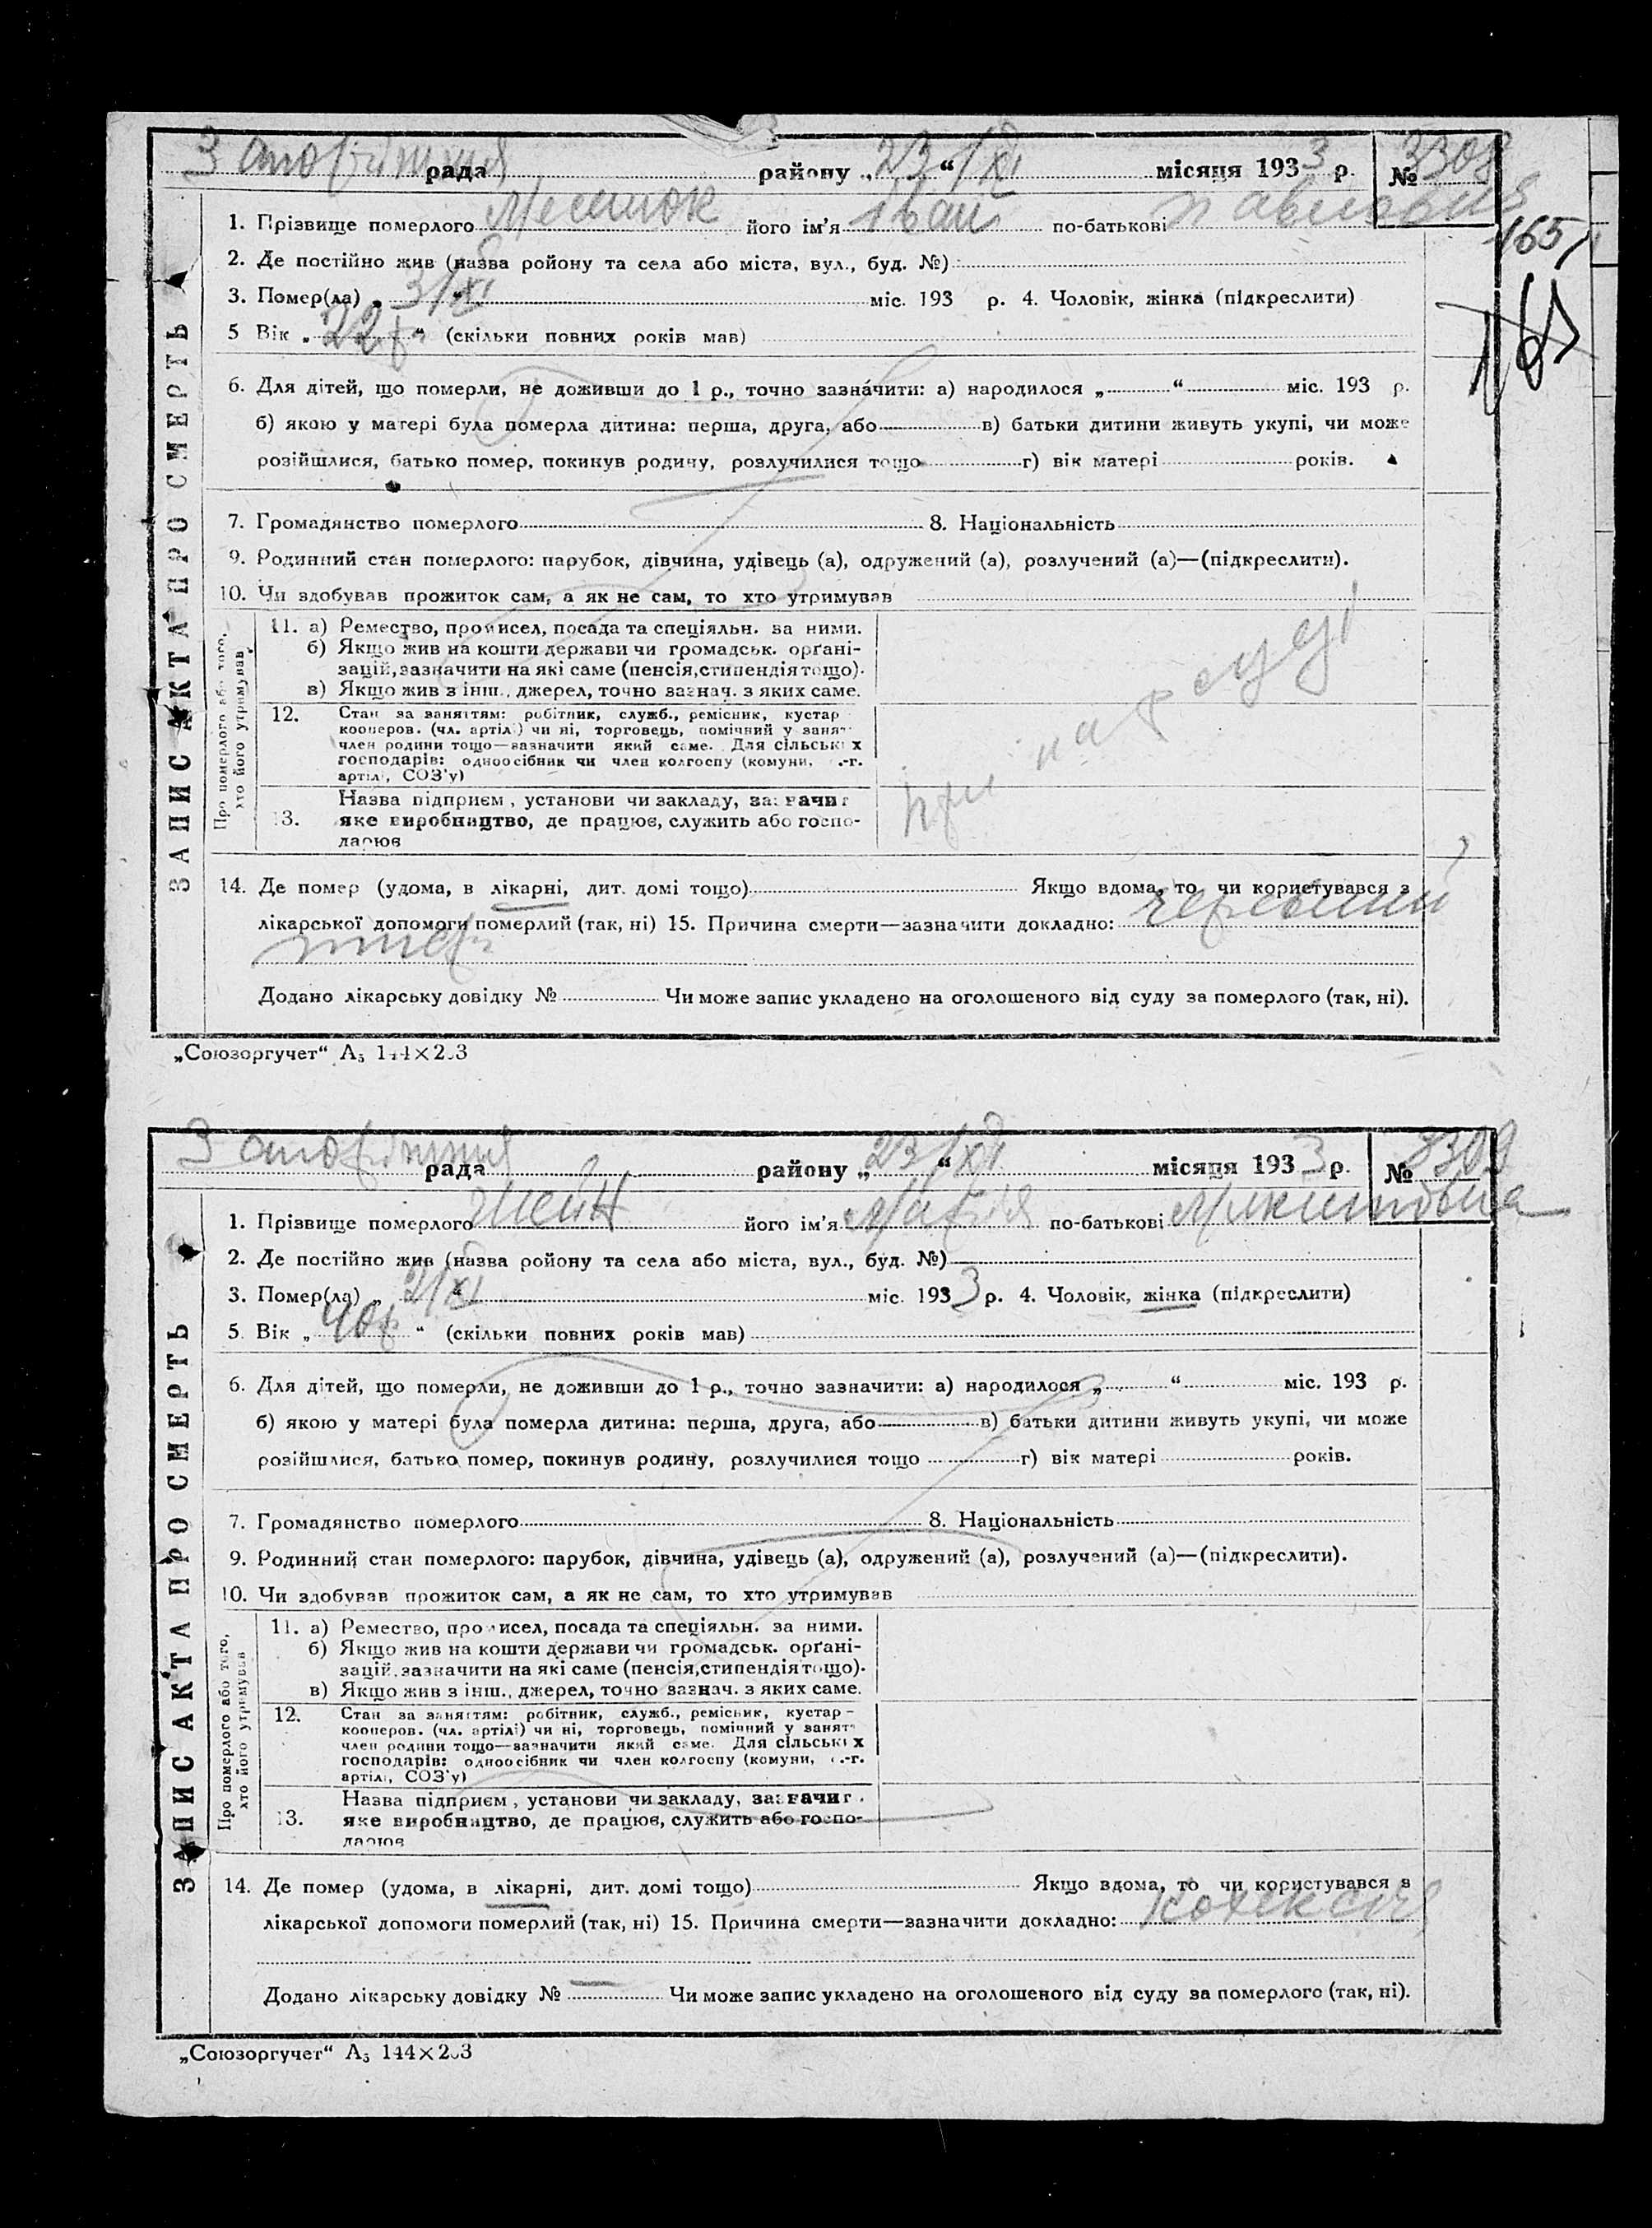 З Запоріжжя рада району „ 23 “ /XI місяця 1933 р. № 3308
1. Прізвище померлого його ім’я Іван по-батькові Павлович
165
2. Де постійно жив (назва ройону та села або міста, вул., буд. №)
3. Помер(ла) „ 3/XI “ міс. 193 р. 4. Чоловік, жінка (підкреслити)
5 Вік „ 22 р “ (скільки повних років мав)
6. Для дітей, що померли, не доживши до 1 р., точно зазначити: а) народилося „ “ міс. 193 р.
б) якою у матері була померла дитина: перша, друга, або в) батьки дитини живуть укупі, чи може
розійшлися, батько помер, покинув родину, розлучилися тощо г) вік матері років.
7. Громадянство померлого 8. Національність
9. Родинний стан померлого: парубок, дівчина, удівець (а), одружений (а), розлучений (а)—(підкреслити).
10. Чи здобував прожиток сам, а як не сам, то хто утримував
ЗАПИС АКТА ПРО СМЕРТЬ
Про померлого або того, хто його утримував
11. а) Ремество, промисел, посада та спеціяльн. за ними.
б) Якщо жив на кошти держави чи громадськ. орґані-
зацій, зазначити на які саме (пенсія, стипендія тощо).
в) Якщо жив з інш., джерел, точно зазнач. з яких саме.
12. Стан за заняттям: робітник, служб., ремісник, кустар
кооперов. (чл. артілі) чи ні, торговець, помічний у занят
член родини тощо—зазначити який саме. Для сільських
господарів: одноосібник чи член колгоспу (комуни, с.-г.
артілі, СОЗ’у)
Назва підприєм., установи чи закладу, зазначит
13. яке виробництво, де працює, служить або госпо-
дарює
при нар суді
14. Де помер (удома, в лікарні, дит. домі тощо) Якщо вдома, то чи користувався з
лікарської допомоги померлий (так, ні) 15. Причина смерти—зазначити докладно: черевний
тиф
Додано лікарську довідку № Чи може запис укладено на оголошеного від суду за померлого (так, ні).
„Союзоргучет“ А₅ 144×203
З Запоріжжя рада району „ 23 “ /XI місяця 1933 р. № 3309
1. Прізвище померлого його ім’я Марія по-батькові Микитовна
2. Де постійно жив (назва ройону та села або міста, вул., буд. №)
3. Помер(ла) „ 2/XI “ міс. 1933 р. 4. Чоловік, жінка (підкреслити)
5. Вік „ 40 р “ (скільки повних років мав)
6. Для дітей, що померли, не доживши до 1 р., точно зазначити: а) народилося „ “ міс. 193 р.
б) якою у матері була померла дитина: перша, друга, або в) батьки дитини живуть укупі, чи може
розійшлися, батько помер, покинув родину, розлучилися тощо г) вік матері років.
7. Громадянство померлого 8. Національність
9. Родинний стан померлого: парубок, дівчина, удівець (а), одружений (а), розлучений (а)—(підкреслити).
10. Чи здобував прожиток сам, а як не сам, то хто утримував
ЗАПИС АКТА ПРО СМЕРТЬ
Про померлого або того, хто його утримував
11. а) Ремество, промисел, посада та спеціяльн. за ними.
б) Якщо жив на кошти держави чи громадськ. орґані-
зацій, зазначити на які саме (пенсія, стипендія тощо).
в) Якщо жив з інш., джерел, точно зазнач. з яких саме.
12. Стан за заняттям: робітник, служб., ремісник, кустар-
кооперов. (чл. артілі) чи ні, торговець, помічний у занят
член родини тощо—зазначити який саме. Для сільських
господарів: одноосібник чи член колгоспу (комуни, с.-г.
артілі, СОЗ’у)
Назва підприєм., установи чи закладу, зазначит.
13. яке виробництво, де працює, служить або госпо-
дарює
14. Де помер (удома, в лікарні, дит. домі тощо) Якщо вдома, то чи користувався з
лікарської допомоги померлий (так, ні) 15. Причина смерти—зазначити докладно:
Додано лікарську довідку № — Чи може запис укладено на оголошеного від суду за померлого (так, ні).
„Союзоргучет“ А₅ 144×203